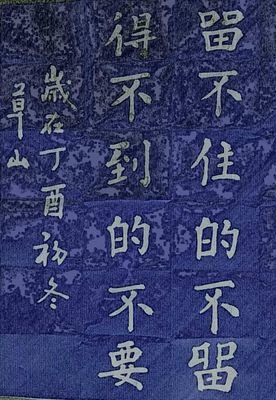 畱不住的不畱
得不到的不要
歲在丁酉初冬
草山